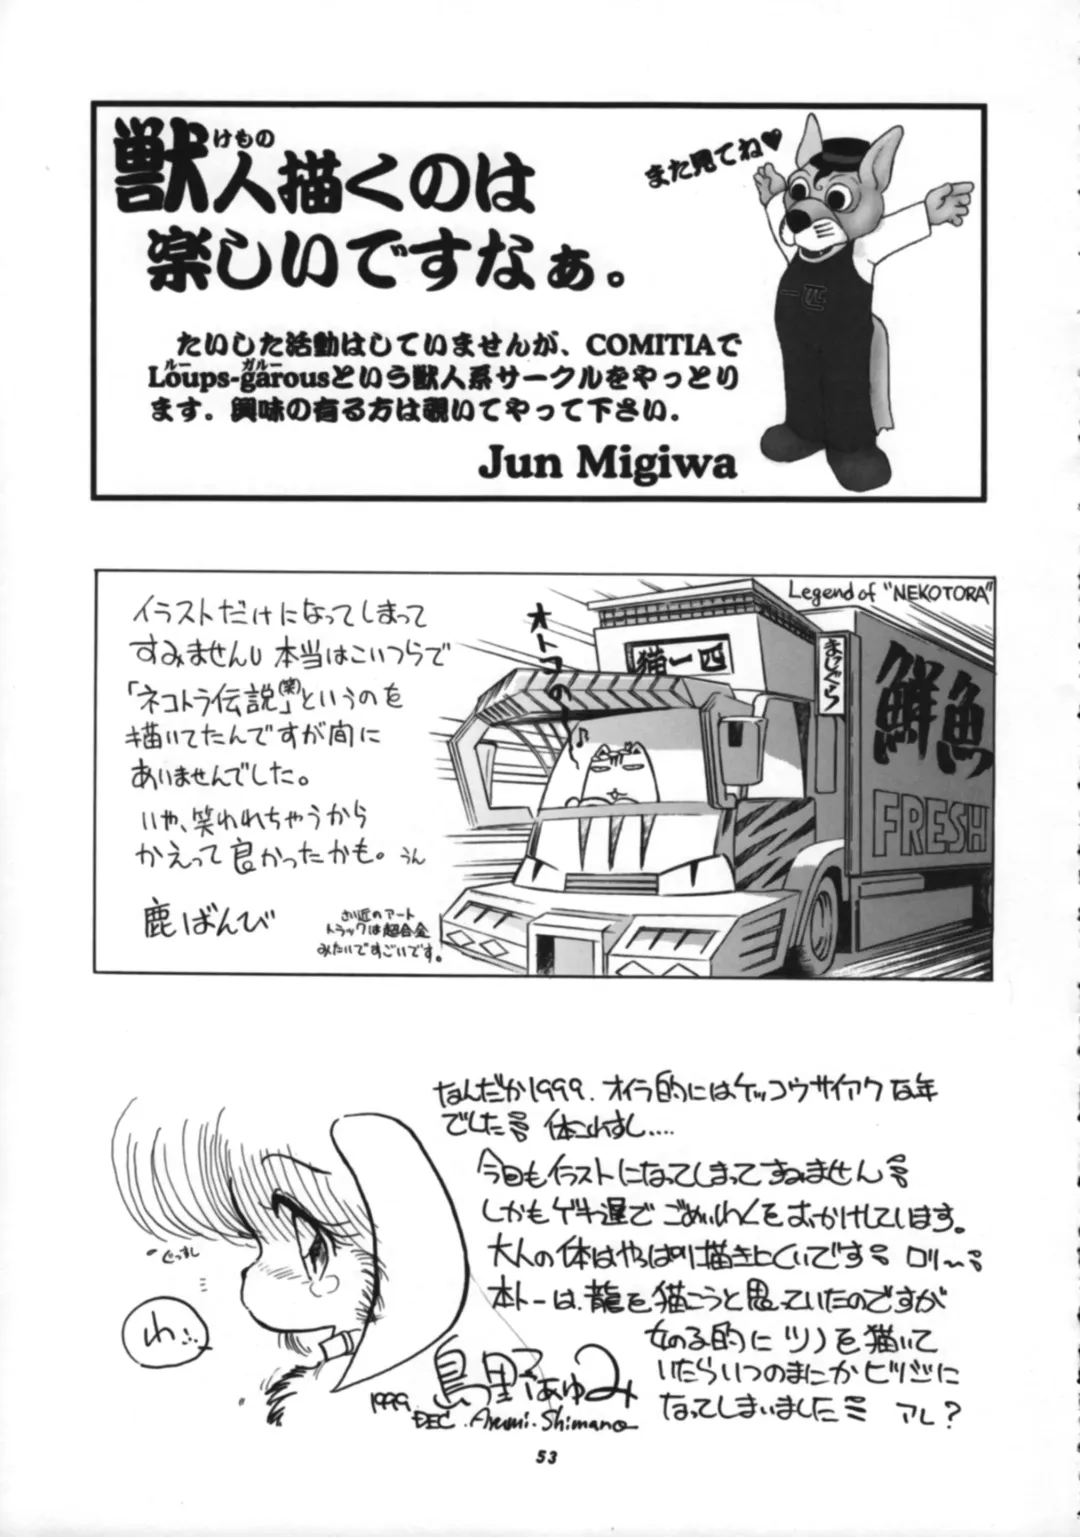 獣人描くのは
けもの
楽しいですなぁ。
また見てね♥
一匹
たいした活動はしていませんが、COMITIAで
Loups-garousという獣人系サークルをやっとり
ルー ガルー
ます．興味の有る方は覗いてやって下さい．
Jun Migiwa
Legend of "NEKOTORA"
イラストだけになってしまって
すみません 本当はこいつらで
「ネコトラ伝説(笑)」というのを
描いてたんですが間に
あいませんでした。
いや、笑われちゃうから
かえって良かったかも。うん
鹿ばんび
さい近のアート
トラックは超合金
みたいですごいです。
オトコの〜
♪
猫一匹
まっしぐら
鮮魚
FRESH
なんだか1999、オイラ的にはケッコウサイアクな年
でした 体こわすし....
今回もイラストになってしまってすみません
しかもゲキ遅でごめいわくをおかけしています。
大人の体はやっぱり描きにくいです ロリ〜
本トーは、龍を描こうと思っていたのですが
女の子的にツノを描いて
いたらいつのまにかヒツジに
なってしまいました アレ?
ぐっすし
わ...
島野あゆみ
1999.
DEC. Ayumi.Shimano
53